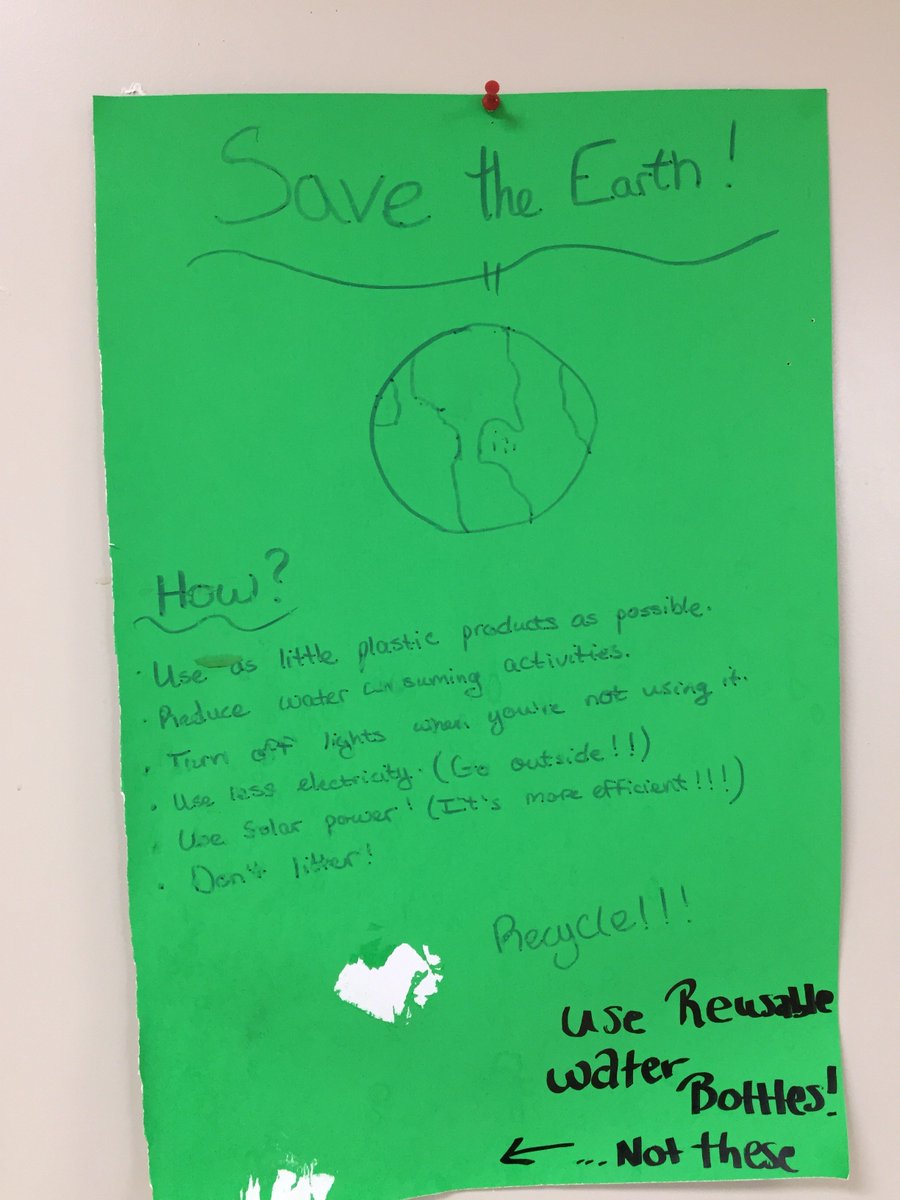 Save the Earth!
How?
· Use as little plastic products as possible.
· Reduce water consuming activities.
· Turn off lights when you're not using it.
· Use less electricity. (Go outside!!)
· Use Solar power! (It's more efficient!!!)
· Don't litter!
Recycle!!!
use Reusable
water
Bottles!
← ... Not these